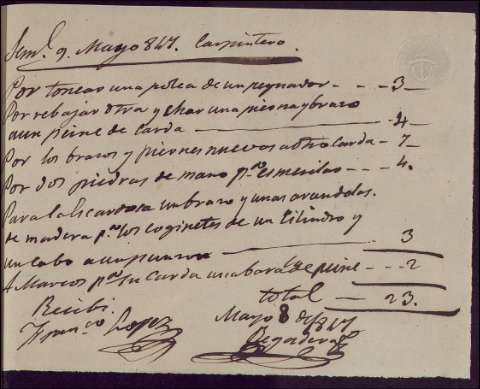 Sem.ª 9. Mayo 847. Carpintero.
Por tonear una polea de un peynador - - - 3
Por rebajar otra y echar una pierna y brazo
a un peine de carda - 4
Por los brazos y piernes nuevos a otra Carda - 7
Por dos piedras de mano p.ª esmerilar - - 4.
Para la Escardosa un brazo y unas arandelas.
de madera p.ª los coginetes de un Cilindro y
un cabo a un 3
A Marcos p.ª su Carda una bara de peine - - - 2
total - 23.
Recibi
Fran.co Lopez
Mayo 8 de 1847